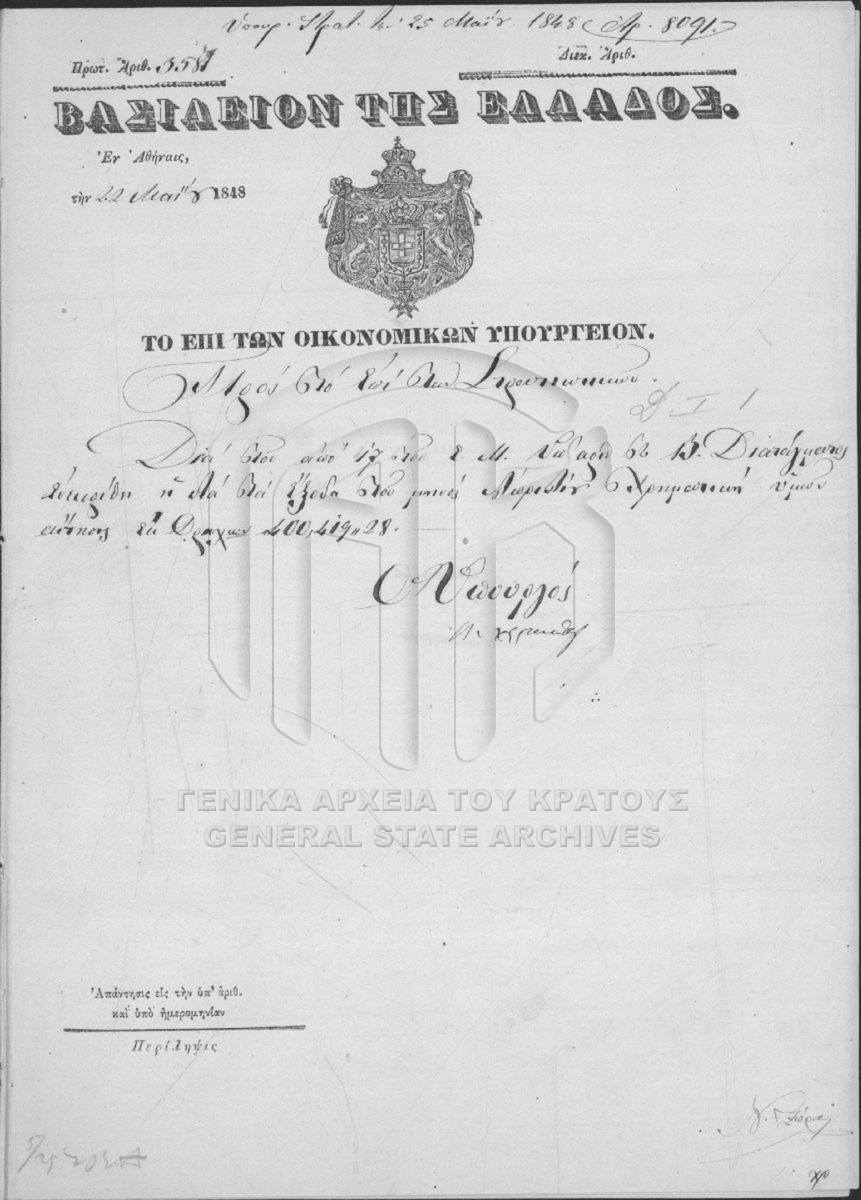 Υπουρ. Στρατ. τη 25 Μαΐου 1848 Αρ. 8091.
Πρωτ. Ἀριθ. 3581
Διεκ. Ἀριθ.
ΒΑΣΙΛΕΙΟΝ ΤΗΣ ΕΛΛΑΔΟΣ.
Ἐν Ἀθήναις,
τὴν 22 Μαΐου 1848
ΤΟ ΕΠΙ ΤΩΝ ΟΙΚΟΝΟΜΙΚΩΝ ΥΠΟΥΡΓΕΙΟΝ.
Πρός τό ἐπί τῶν Στρατιωτικῶν.
Διά τοῦ ἀπό 17 τοῦ ἐ. Μ. ἐκδοθ Β. Διατάγματος
ἐνεκρίθη ἡ διά τά ἔξοδα τοῦ μηνός Ἀπριλίου χρηματική ὑμῶν
αἴτησις ἐκ Δραχμῶν 400,419,,28.
Ὁ Ὑπουργός
ΓΕΝΙΚΑ ΑΡΧΕΙΑ ΤΟΥ ΚΡΑΤΟΥΣ
GENERAL STATE ARCHIVES
Ἀπάντησις εἰς τὴν ὑπ' ἀριθ.
καὶ ὑπὸ ἡμερομηνίαν
Περίληψις